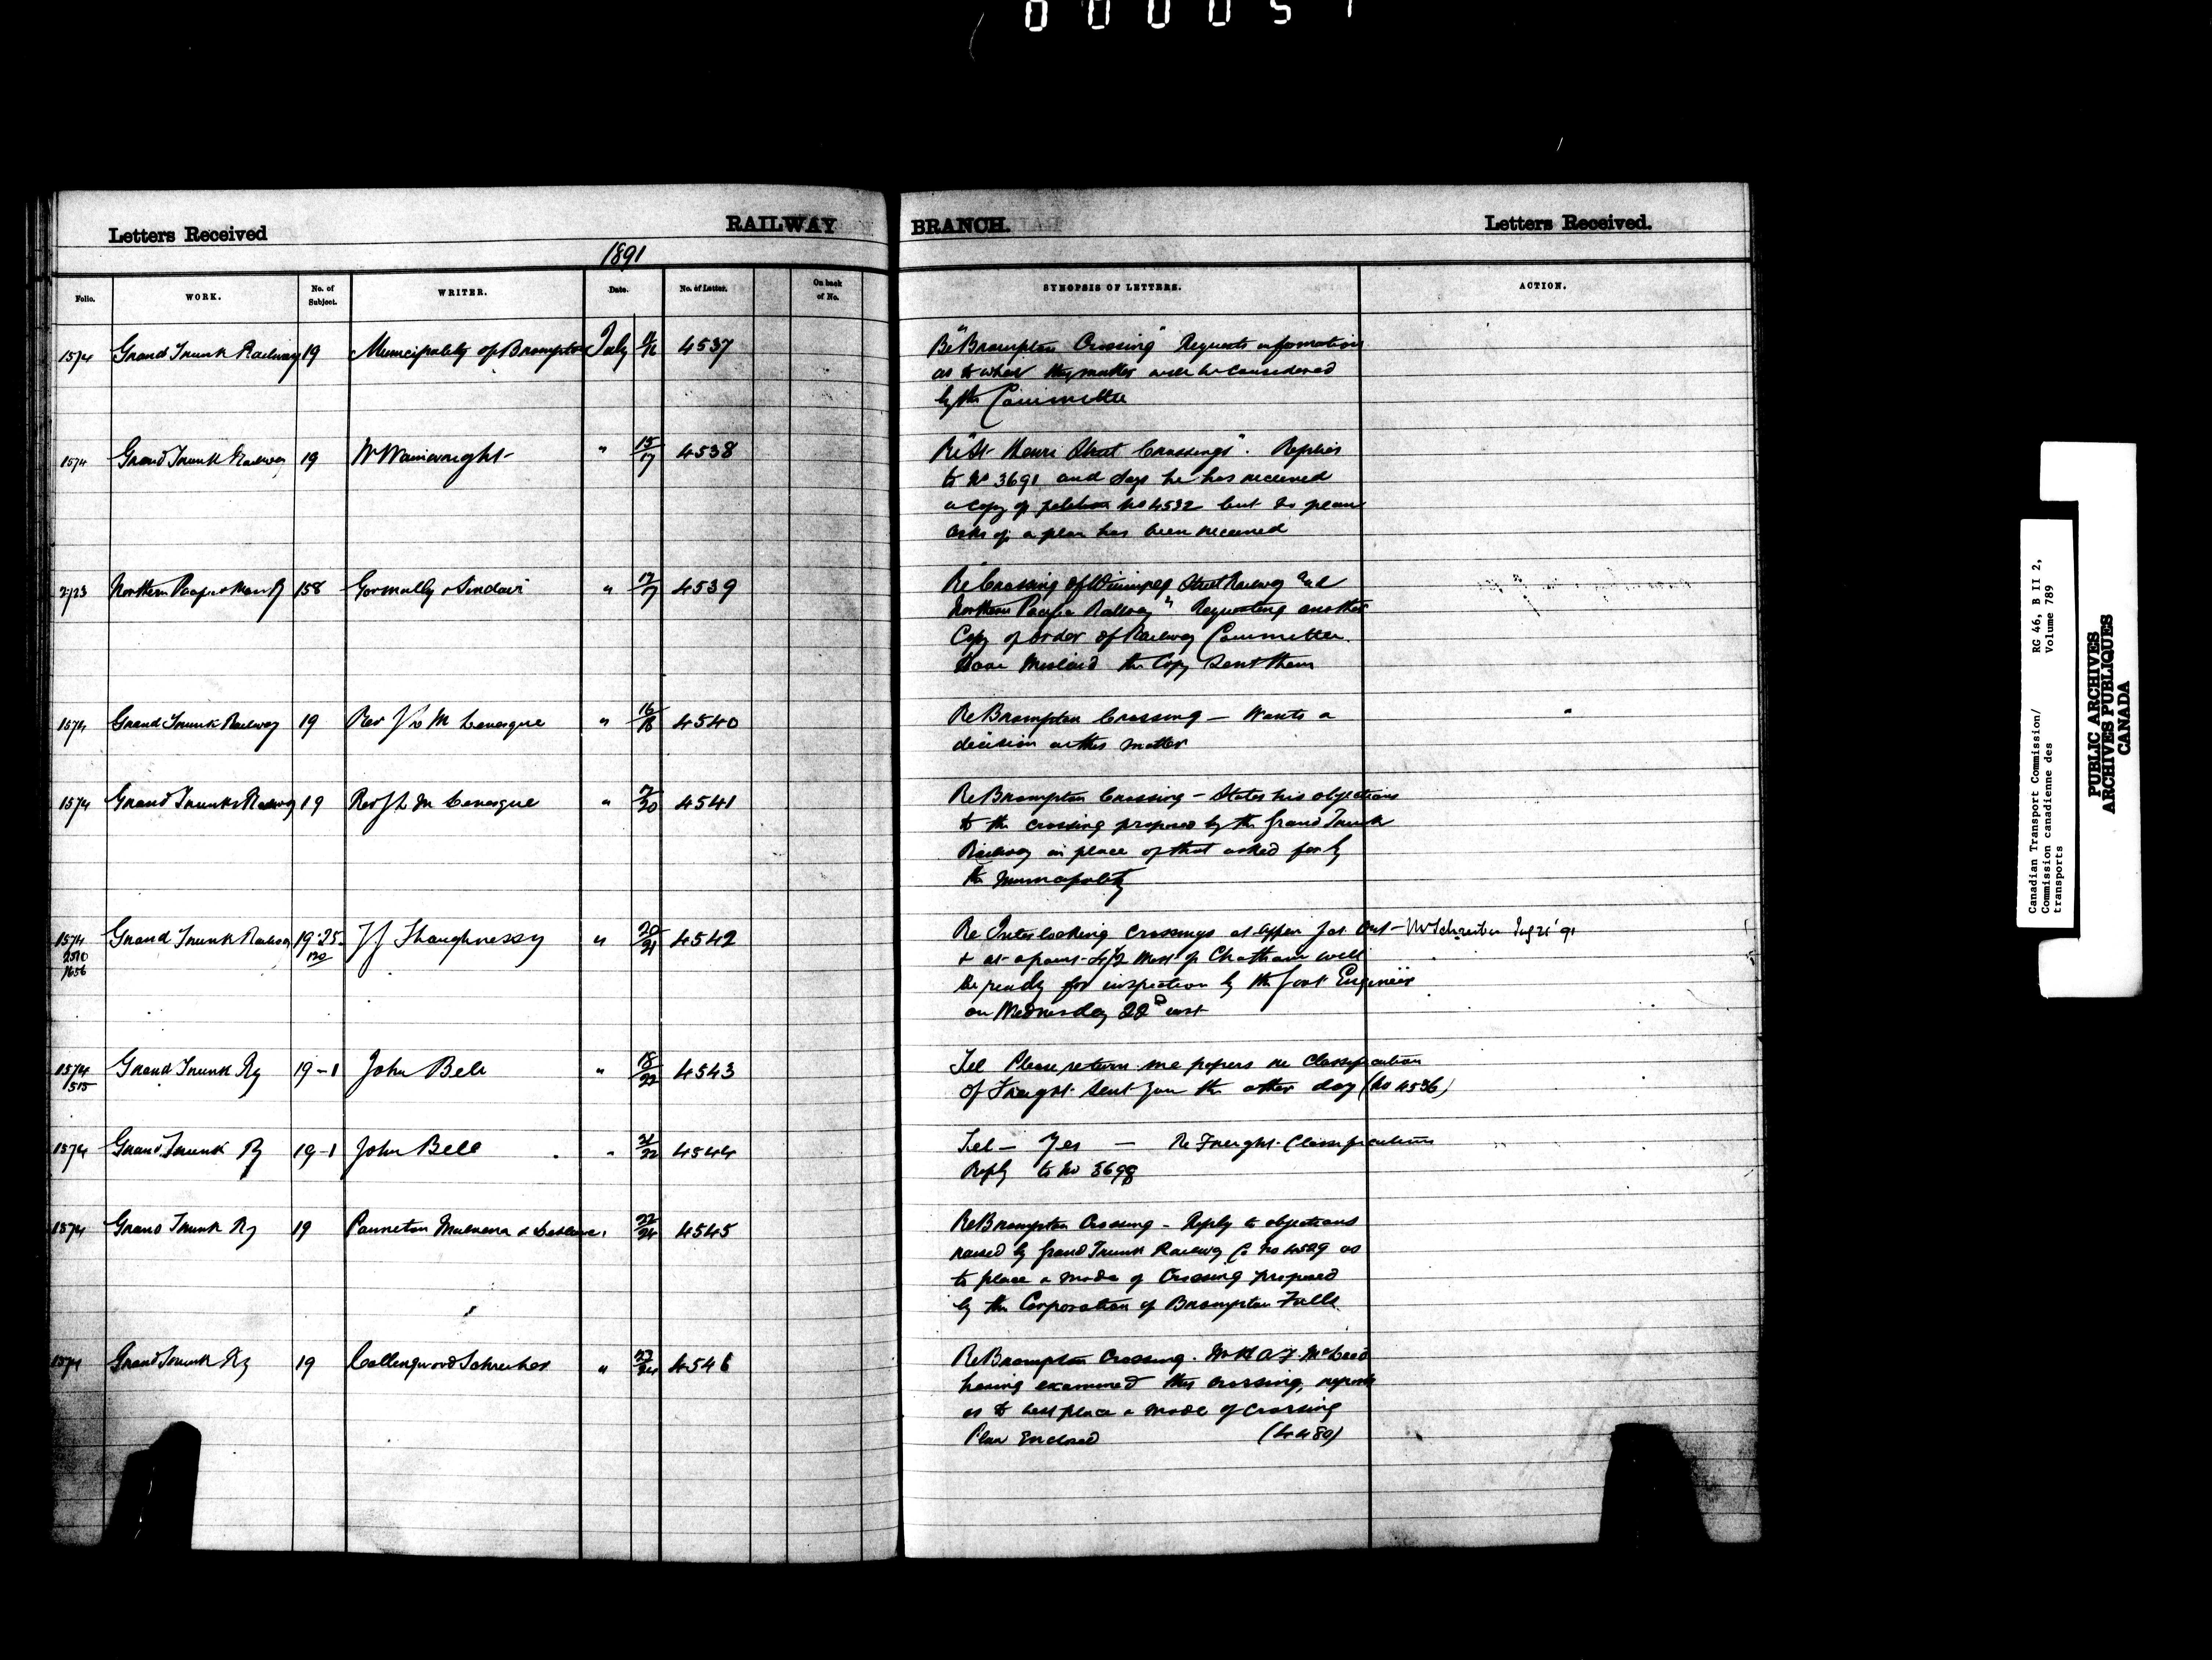 000051
Letters Received RAILWAY BRANCH. Letters Received.
1891
Folio. WORK. No. of Subject. WRITER. Date. No. of Letter. On back of No. SYNOPSIS OF LETTERS. ACTION.
1574 Grand Trunk Railway 19 Municipality of Brompton July 4537 Re "Brompton Crossing" Requests information
as to when this matter will be considered
by the Committee
1574 Grand Trunk Railway 19 W Wainwright " 15/17 4538 Re "St Henri Street Crossings". Replies
to No 3691 and says he has received
a copy of petition No 4532 but no plan
asks if a plan has been received
2723 Northern Pacific & Man Ry 158 Gormully & Sinclair " 17/17 4539 Re "Crossing of Winnipeg Street Railway and
Northern Pacific Railway" Requesting another
Copy of order of Railway Committee.
Have Mislaid the Copy sent them
1574 Grand Trunk Railway 19 Rev J L M Levesque " 16/18 4540 Re Brompton Crossing — Wants a
decision in this matter
1574 Grand Trunk Railway 19 Rev J L M Levesque " 4541 Re Brompton Crossing — States his objections
to the crossing proposed by the Grand Trunk
Railway in place of that asked for by
the Municipality
1574 Grand Trunk Railway 19-25- T J Shaughnessy " 20/21 4542 Re Interlocking Crossings at
2510 120 & at a point 4½ Miles of Chatham will
1656 be ready for inspection by the Govt Engineer
on Wednesday 22nd inst
Mr Schreiber 21 '91
1574 Grand Trunk Ry 19-1 John Bell " 18/22 4543 Tel Please return me papers re Classification
515 of Freight sent you the other day (No 4536)
1574 Grand Trunk Ry 19-1 John Bell " 21/22 4544 Tel — Yes — Re Freight Classification
Reply to No 3698
1574 Grand Trunk Ry 19 Panneton Mulvena & " 22/24 4545 Re Brompton Crossing — Reply to objections
raised by Grand Trunk Railway Co No 4529 as
to place & mode of Crossing proposed
by the Corporation of Brompton Falls
1574 Grand Trunk Ry 19 Collingwood Schreiber " 23/24 4546 Re Brompton Crossing. Mr H A F McLeod
having examined this crossing, reports
as to best place & mode of crossing
Plan Enclosed
Canadian Transport Commission/ RG 46, B II 2,
Commission canadienne des Volume 789
transports
PUBLIC ARCHIVES
ARCHIVES PUBLIQUES
CANADA